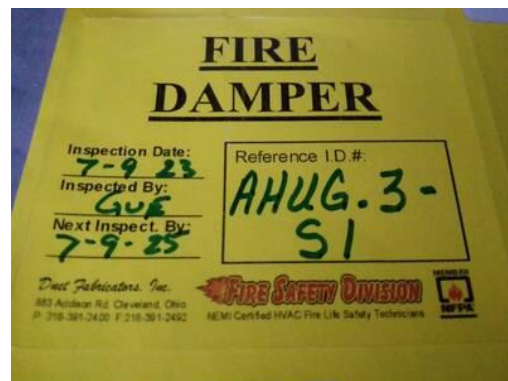 FIRE
DAMPER
Inspection Date:
7-9 23
Inspected By:
GUE
Next Inspect. By:
7-9-25
Reference I.D.#:
AHUG.3-
S1
Duct Fabricators, Inc.
883 Addison Rd. Cleveland, Ohio
P: 216-391-2400 F:216-391-2492
FIRE SAFETY DIVISION
NEMI Certified HVAC Fire Life Safety Technicians
MEMBER
NFPA